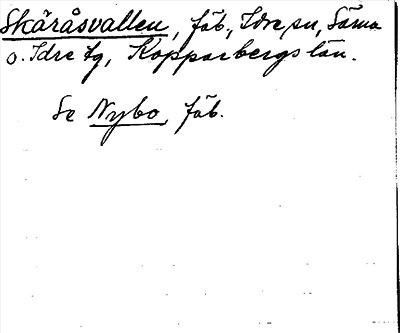 Skäråsvallen, fäb., Idre sn, Särna
o. Idre tg, Kopparbergs län.
Se Nybo, fäb.